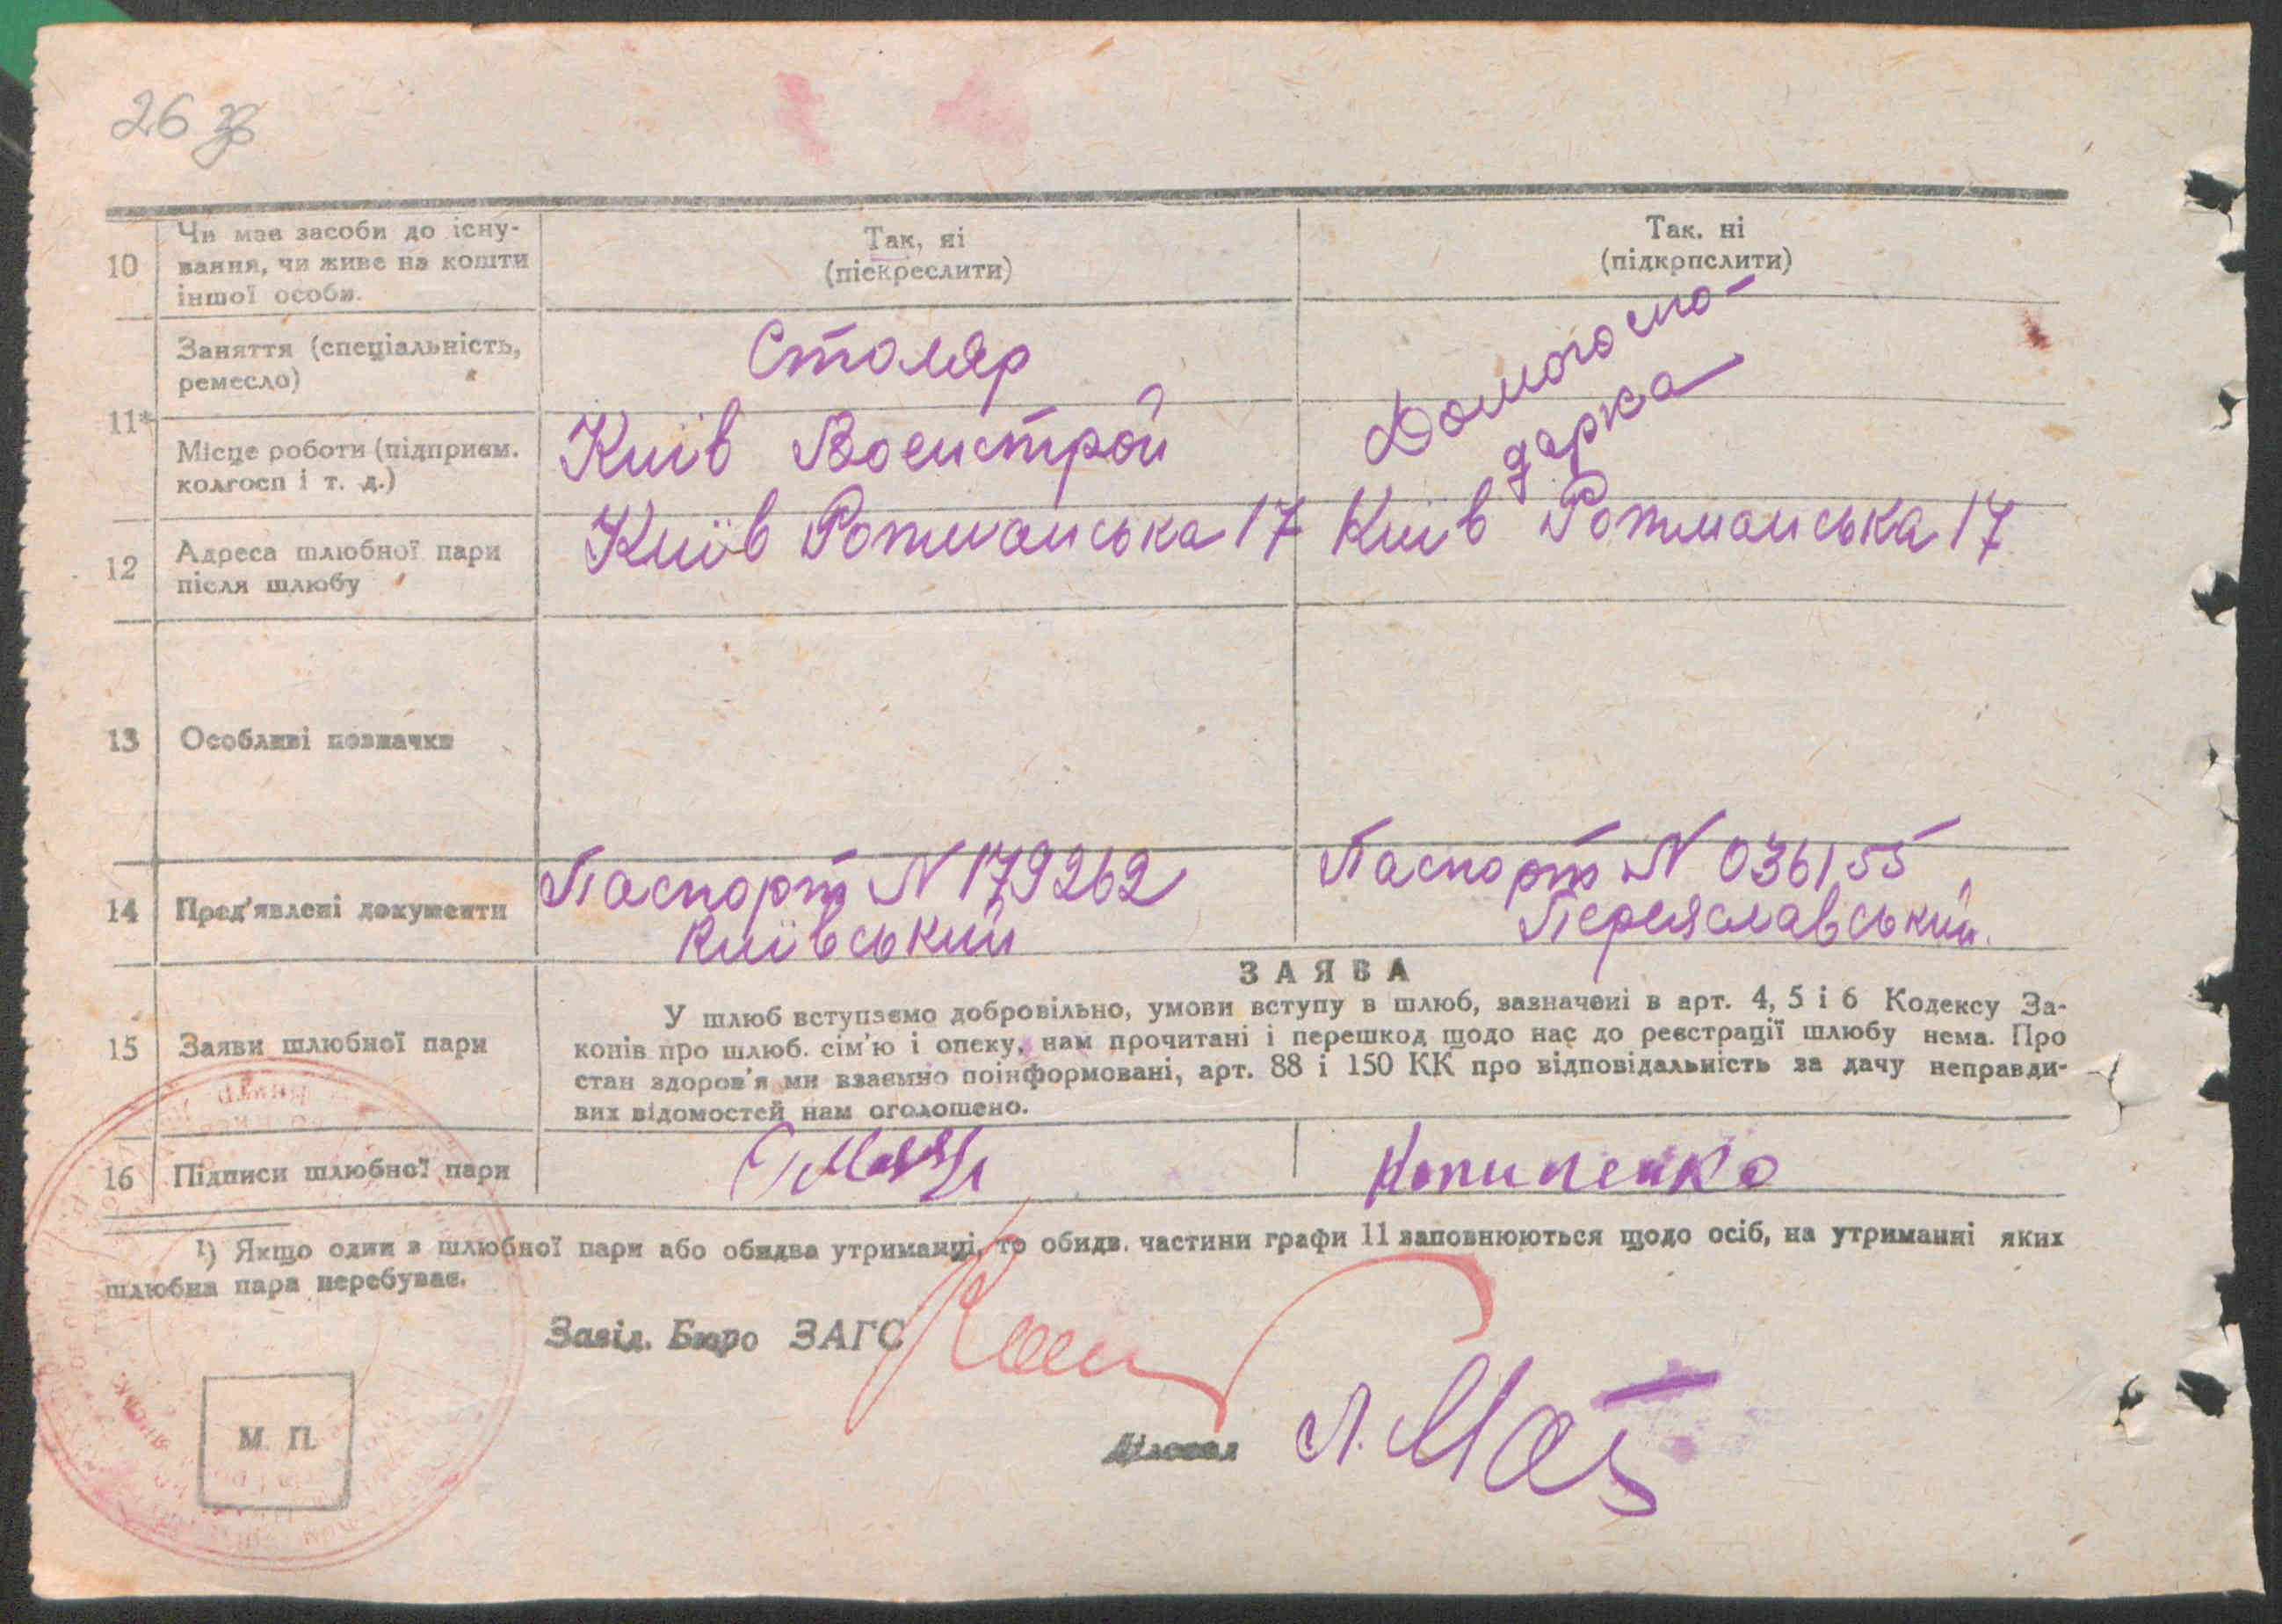 26 зв
10 Чи має засоби до існу-
вання, чи живе на кошти
іншої особи.
Так, ні
(піекреслити)
Так. ні
(підкрпслити)
11*
Заняття (спеціальність,
ремесло)
Столяр
Домогоспо-
дарка
Місце роботи (підприєм.
колгосп і т. д.)
Київ Военстрой
12 Адреса шлюбної пари
після шлюбу
Київ Ротманська 17
Київ Ротманська 17
13 Особливі позначки
14 Пред'явлені документи
Паспорт N 179262
Київський
Паспорт N 036155
Переяславський.
ЗАЯВА
15 Заяви шлюбної пари
У шлюб вступаємо добровільно, умови вступу в шлюб, зазначені в арт. 4, 5 і 6 Кодексу За-
конів про шлюб. сім'ю і опеку, нам прочитані і перешкод щодо нас до реєстрації шлюбу нема. Про
стан здоров'я ми взаємно поінформовані, арт. 88 і 150 КК про відповідальність за дачу неправди-
вих відомостей нам оголошено.
16 Підписи шлюбної пари
1) Якщо один з шлюбної пари або обидва утриманці, то обидв. частини графи 11 заповнюються щодо осіб, на утриманні яких
шлюбна пара перебуває.
Завід. Бюро ЗАГС
Діловод
М. П.